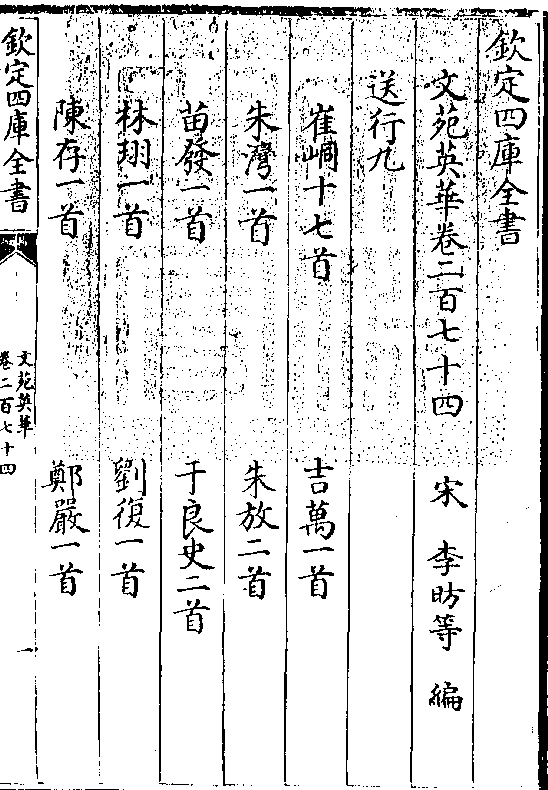 欽定四庫全書
文苑英華卷二百七十四
宋 李昉等 編
送行九
崔峒十七首 吉萬一首
朱灣一首 朱放二首
苗發一首 于良史二首
林珝一首 劉復一首
陳存一首 鄭嚴一首
欽定四庫全書
文苑英華
卷二百七十四
一